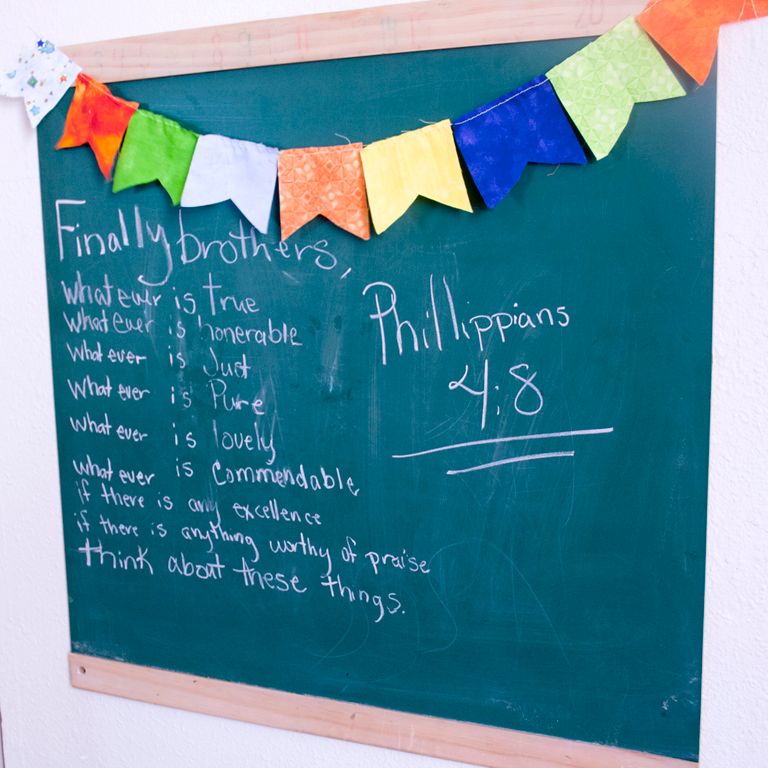 Finally brothers,
whatever is true
whatever is honerable
whatever is Just
whatever is Pure
whatever is lovely
whatever is Commendable
if there is any excellence
if there is anything worthy of praise
think about these things.
Phillippians
4:8